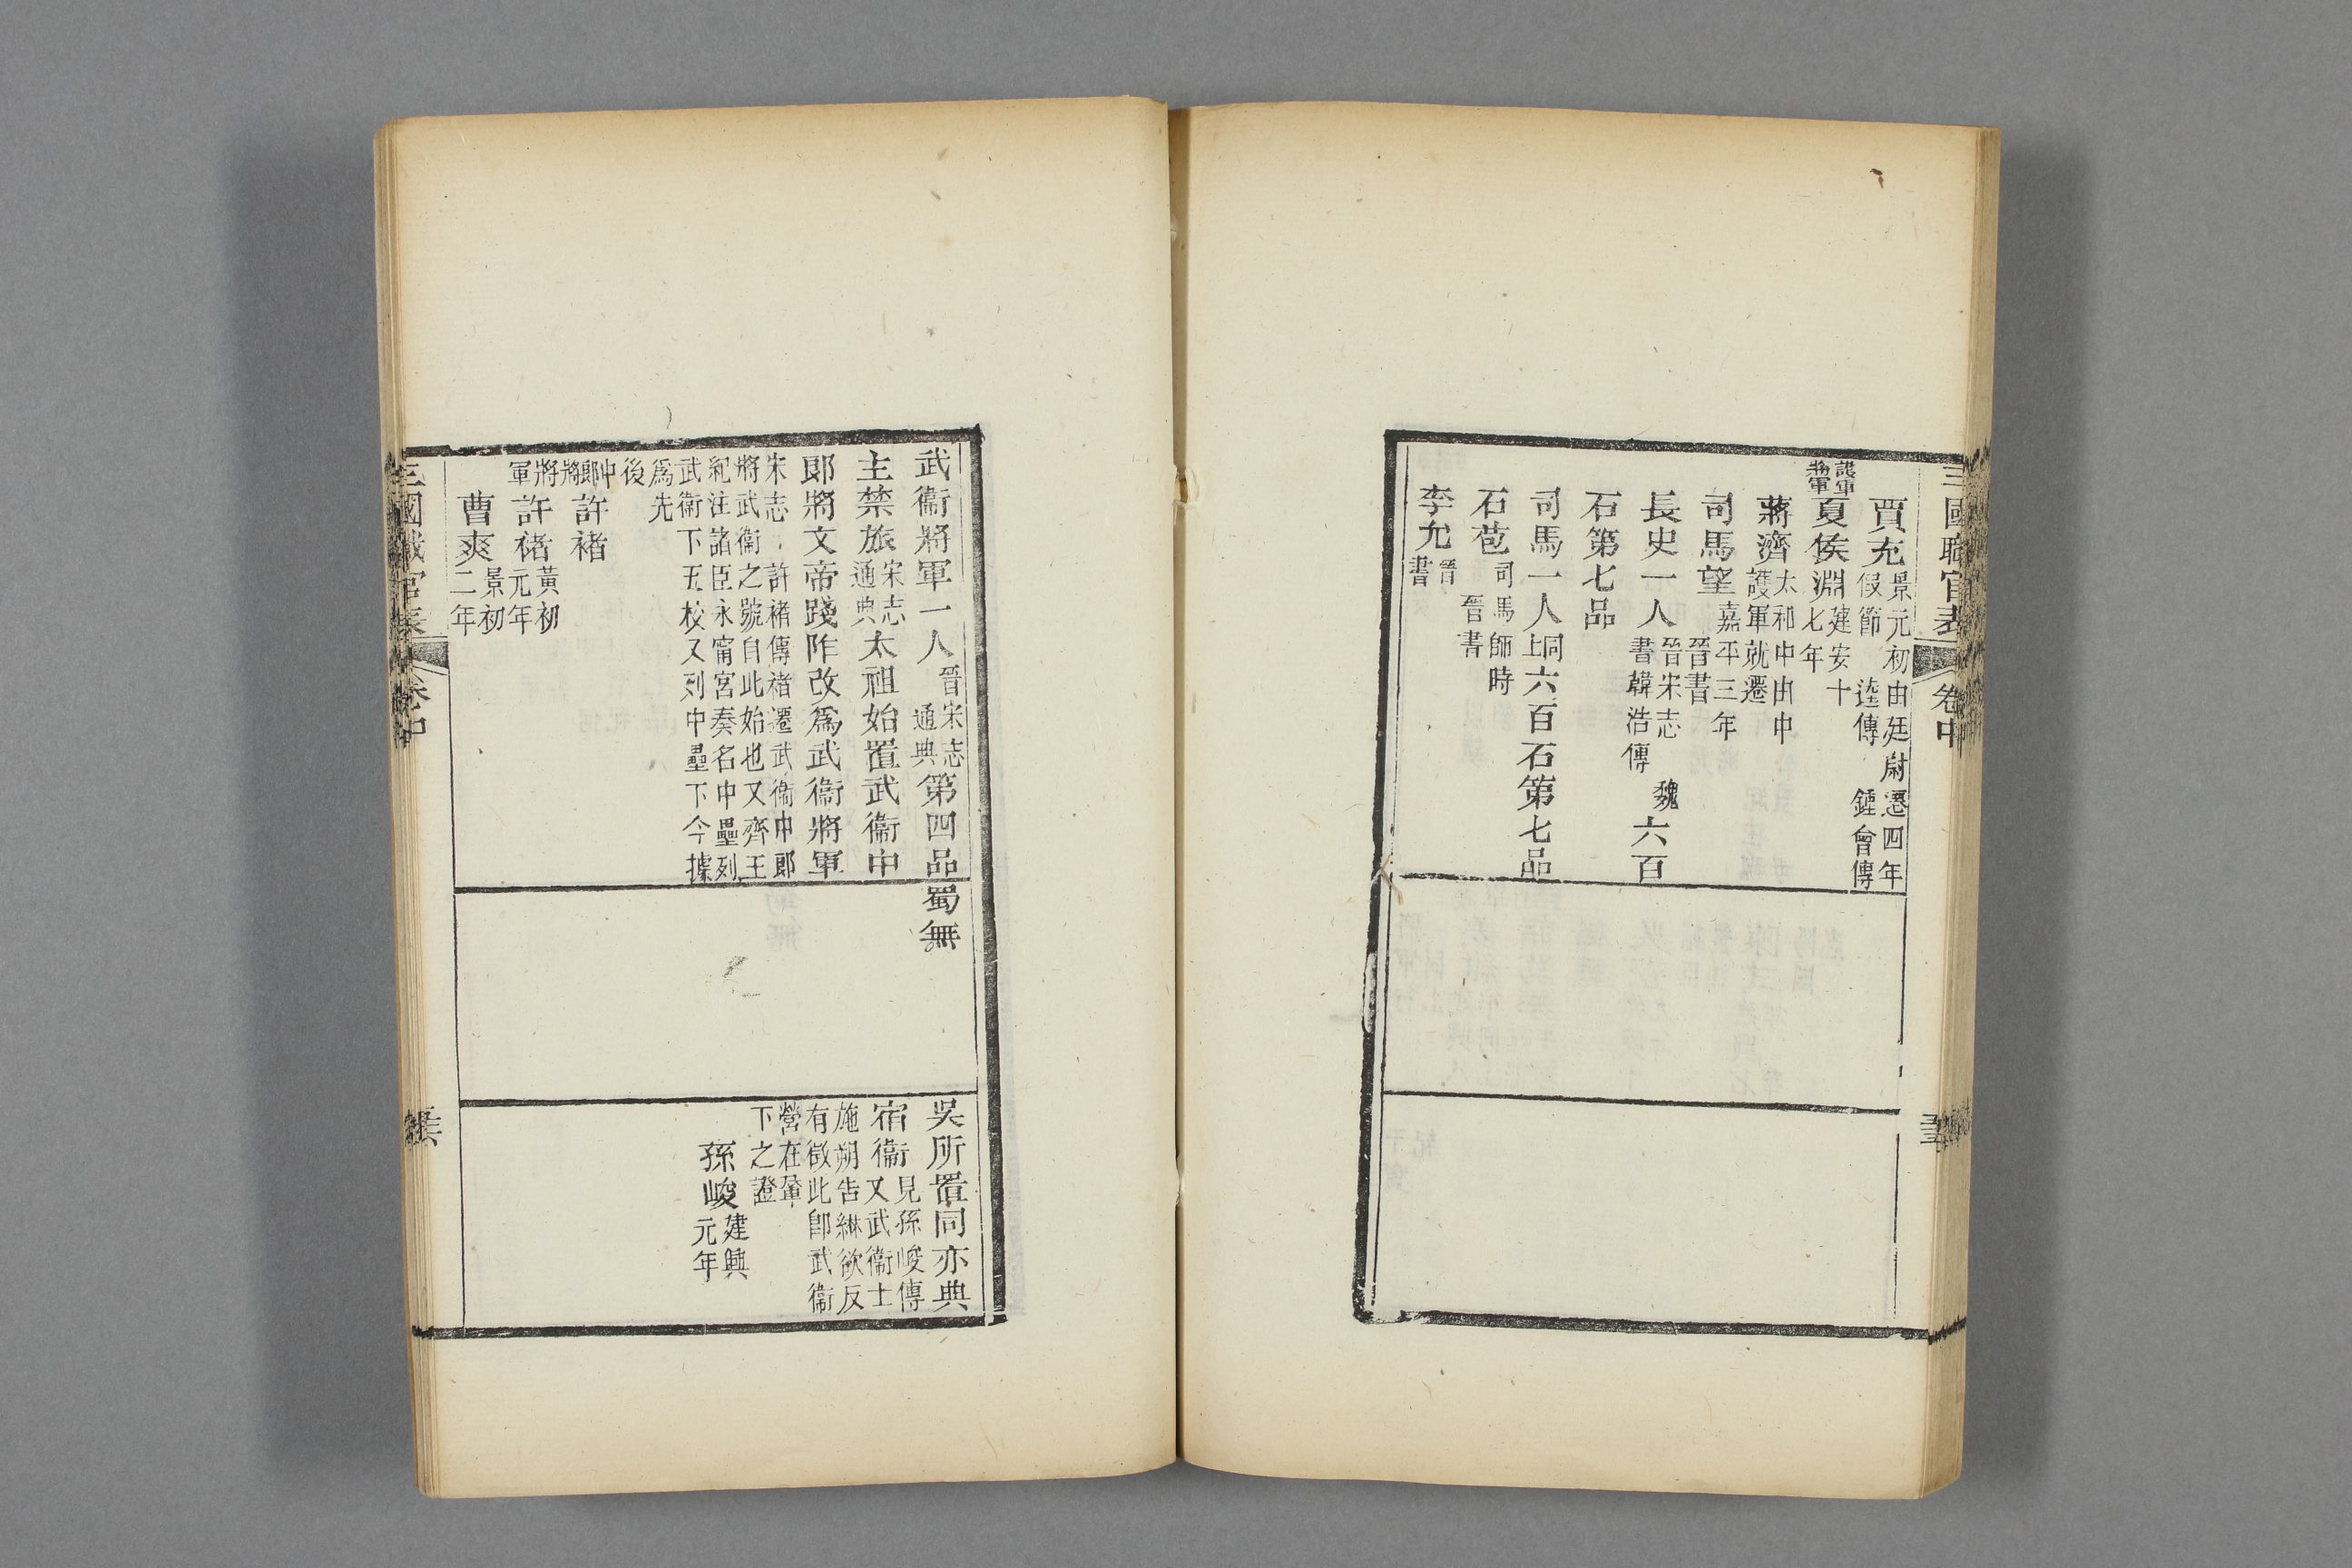 三國職官表 卷中
賈充 景元初由廷尉遷四年假節 逵傳 鍾會傳
護軍將軍 夏侯淵 建安十七年
蔣濟 太和中由中護軍就遷
司馬望 嘉平三年 晉書
長史一人 晉宋志 魏書韓浩傳 六百
石第七品
司馬一人 同上 六百石第七品
石苞 司馬師時 晉書
李允 晉書
武衞將軍一人 晉宋志 通典 第四品
主禁旅 宋志 通典 太祖始置武衞中
郎將文帝踐阼改爲武衞將軍
宋志 許褚傳褚遷武衞中郎
將武衞之號自此始也又齊王
紀注諸臣永甯宮奏名中壘列
武衞下五校又列中壘下今據
爲先
後
中郎將 許褚
將軍 許褚 黃初元年
曹爽 景初二年
蜀無
吳所置同亦典
宿衞 見孫峻傳又武衞士
施朔告綝欲反
有徵此卽武衞
營在輦
下之證
孫峻 建興元年
三國職官表 卷中